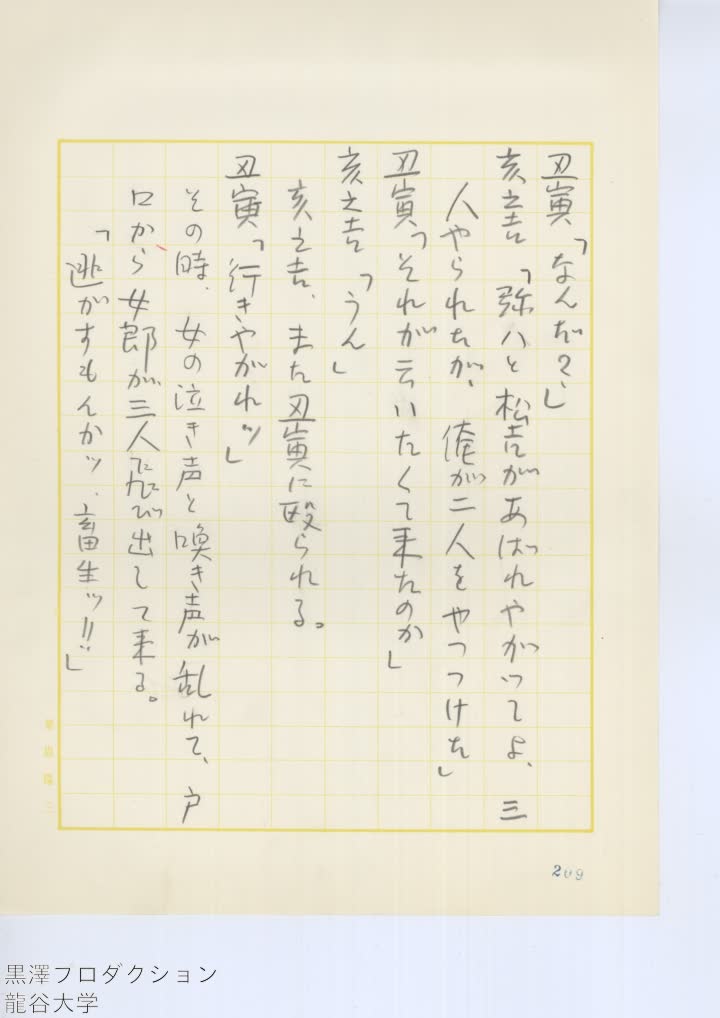 丑寅「なんだ?」
亥之吉「弥八と松吉があばれやがってよ、三
人やられたが、俺が二人をやっつけた」
丑寅「それが云いたくて来たのか」
亥之吉「うん」
亥之吉、また丑寅に殴られる。
丑寅「行きやがれッ」
その時、女の泣き声と喚き声が乱れて、戸
口から女郎が三人飛び出して来る。
「逃がすもんかッ、畜生ッ!!」
209
黒澤プロダクション
龍谷大学